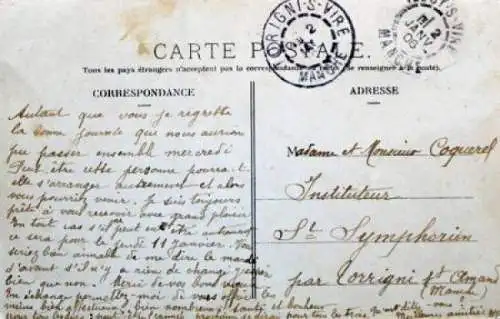 TORIGNI-S-VIRE
2
MANCHE
TORIGNI-S-VIRE
2
JANV.
06
MANCHE
CARTE POSTALE.
Tous les pays étrangers n'acceptent pas la correspondance au recto (se renseigner à la poste).
CORRESPONDANCE
ADRESSE
Autant que vous je regrette
la bonne journée que nous aurions
pu passer ensemble mercredi
Peut être cette personne pourra-t
elle s'arranger autrement et alors
vous pourriez venir. Je suis toujours
prête à vous recevoir avec grand plaisir
En tout cas s'il peut en être autrement
ce sera pour le jeudi 11 Janvier. Vous
seriez bien aimable de me dire le mardi
d'avant s'il n'y a rien de changé
bien que non. Merci de vos bons vœux
En échange permettez-moi de vous offrir
bien affectueux bien nombreux Santé et bonheur
pour tous les trois
Madame et Monsieur Coquerel
Instituteur
St Symphorien
par Torrigni St Amand
(Manche)